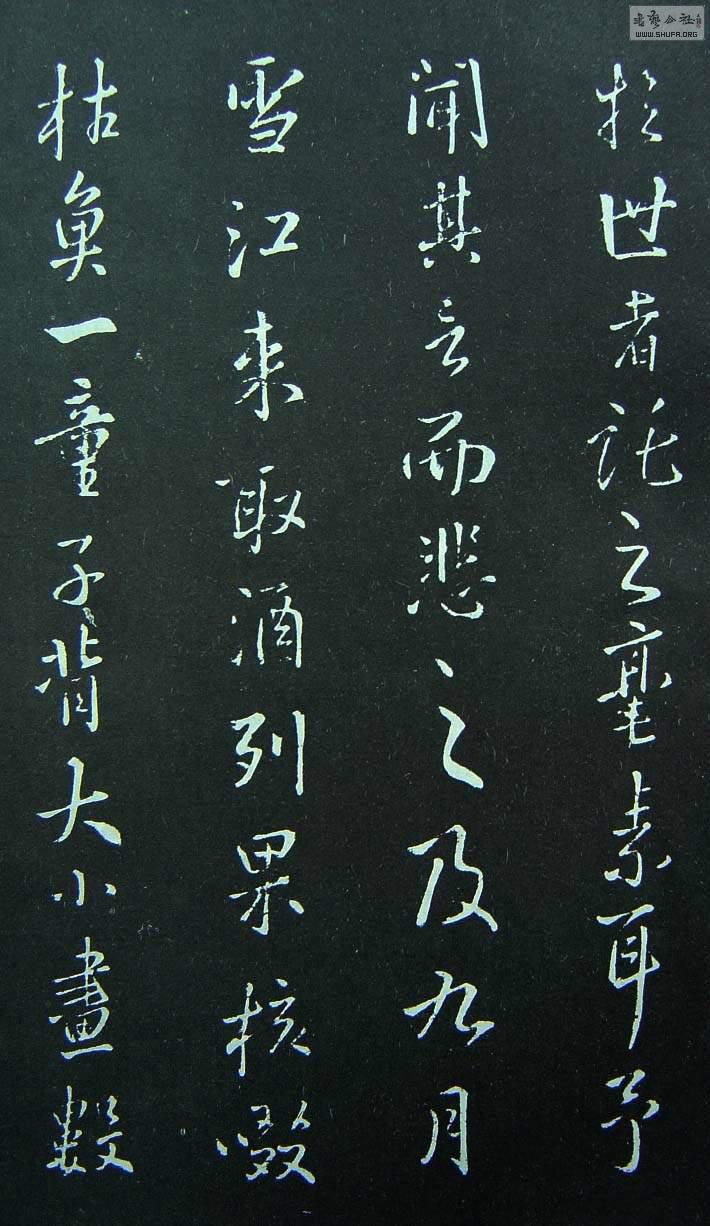 於世者託之毫素耳予
聞其言而悲之及九月
雪江来取酒列果核啜
枯魚一童子背大小畫數
書藝公社
WWW.SHUFA.ORG